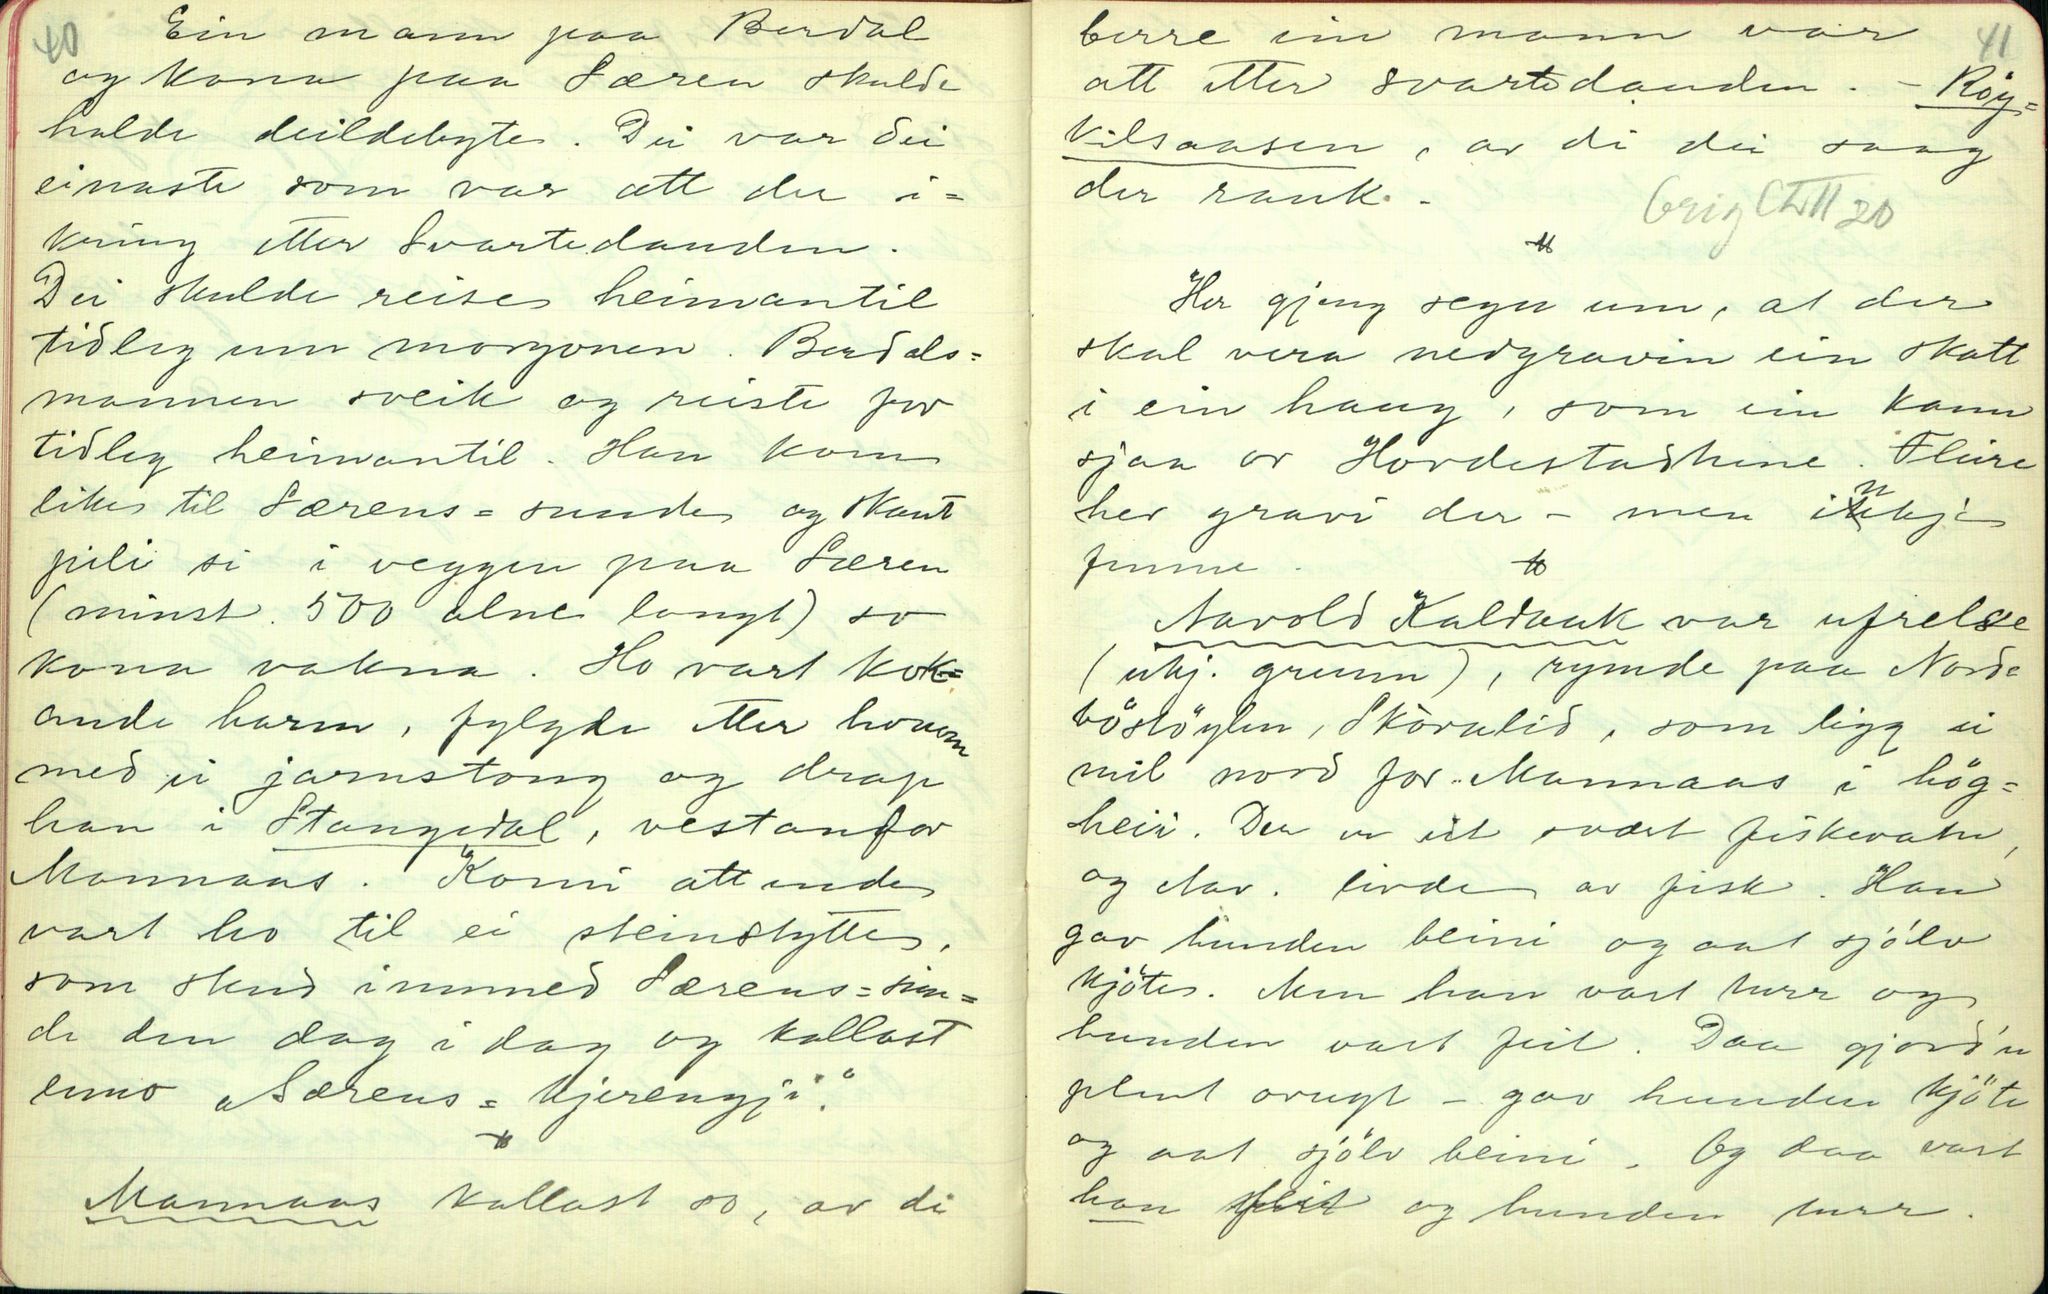 40
Ein mann paa Berdal
og kona paa Særen skulde
halde deildebyte. Dei var dei
einaste som var att der i=
kring etter Svartedauden.
Dei skulde reise heimantil
tidleg um morgonen. Berdals=
mannen sveik og reiste for
tidleg heimantil. Han kom
like til Særens=sunde og skaut
pili si i veggen paa Særen
(minst 500 alne langt) so
kona vakna. Ho vart kok=
ande harm, fylgde etter honom
med ei jarnstong og drap
han i Stangedal, vestanfor
Mannaas. Komi attende
vart ho til ei steinstytte,
som stend innmed Særens=sun=
de den dag i dag og kallast
enno „Særens=kjerengji“.
Mannaas kallast so, av di
41
berre ein mann var
att etter svartedauden. – Röy=
kilsaasen, av di dei saag
der rauk. –
Her gjeng segn um, at der
skal vera nedgravin ein skatt
i ein haug, som ein kann
sjaa or Hovdestadtune. Fleire
hev gravi der – men inkje
funne.
Aavold Kaldbak var ufrelse
(ikj. grunn), rymde paa Nord-
böstöylen, Skoralid, som ligg ei
mil nord for Mannaas i hög=
heii. Der er eit svært fiskevatn,
og Aav. livde av fisk. Han
gav hunden beini og aat sjölv
kjöte. Men han vart turr og
hunden vart feit. Daa gjord'n
plent orugt – gav hunden kjöte
og aat sjölv beini. Og daa vart
han feit og hunden turr.